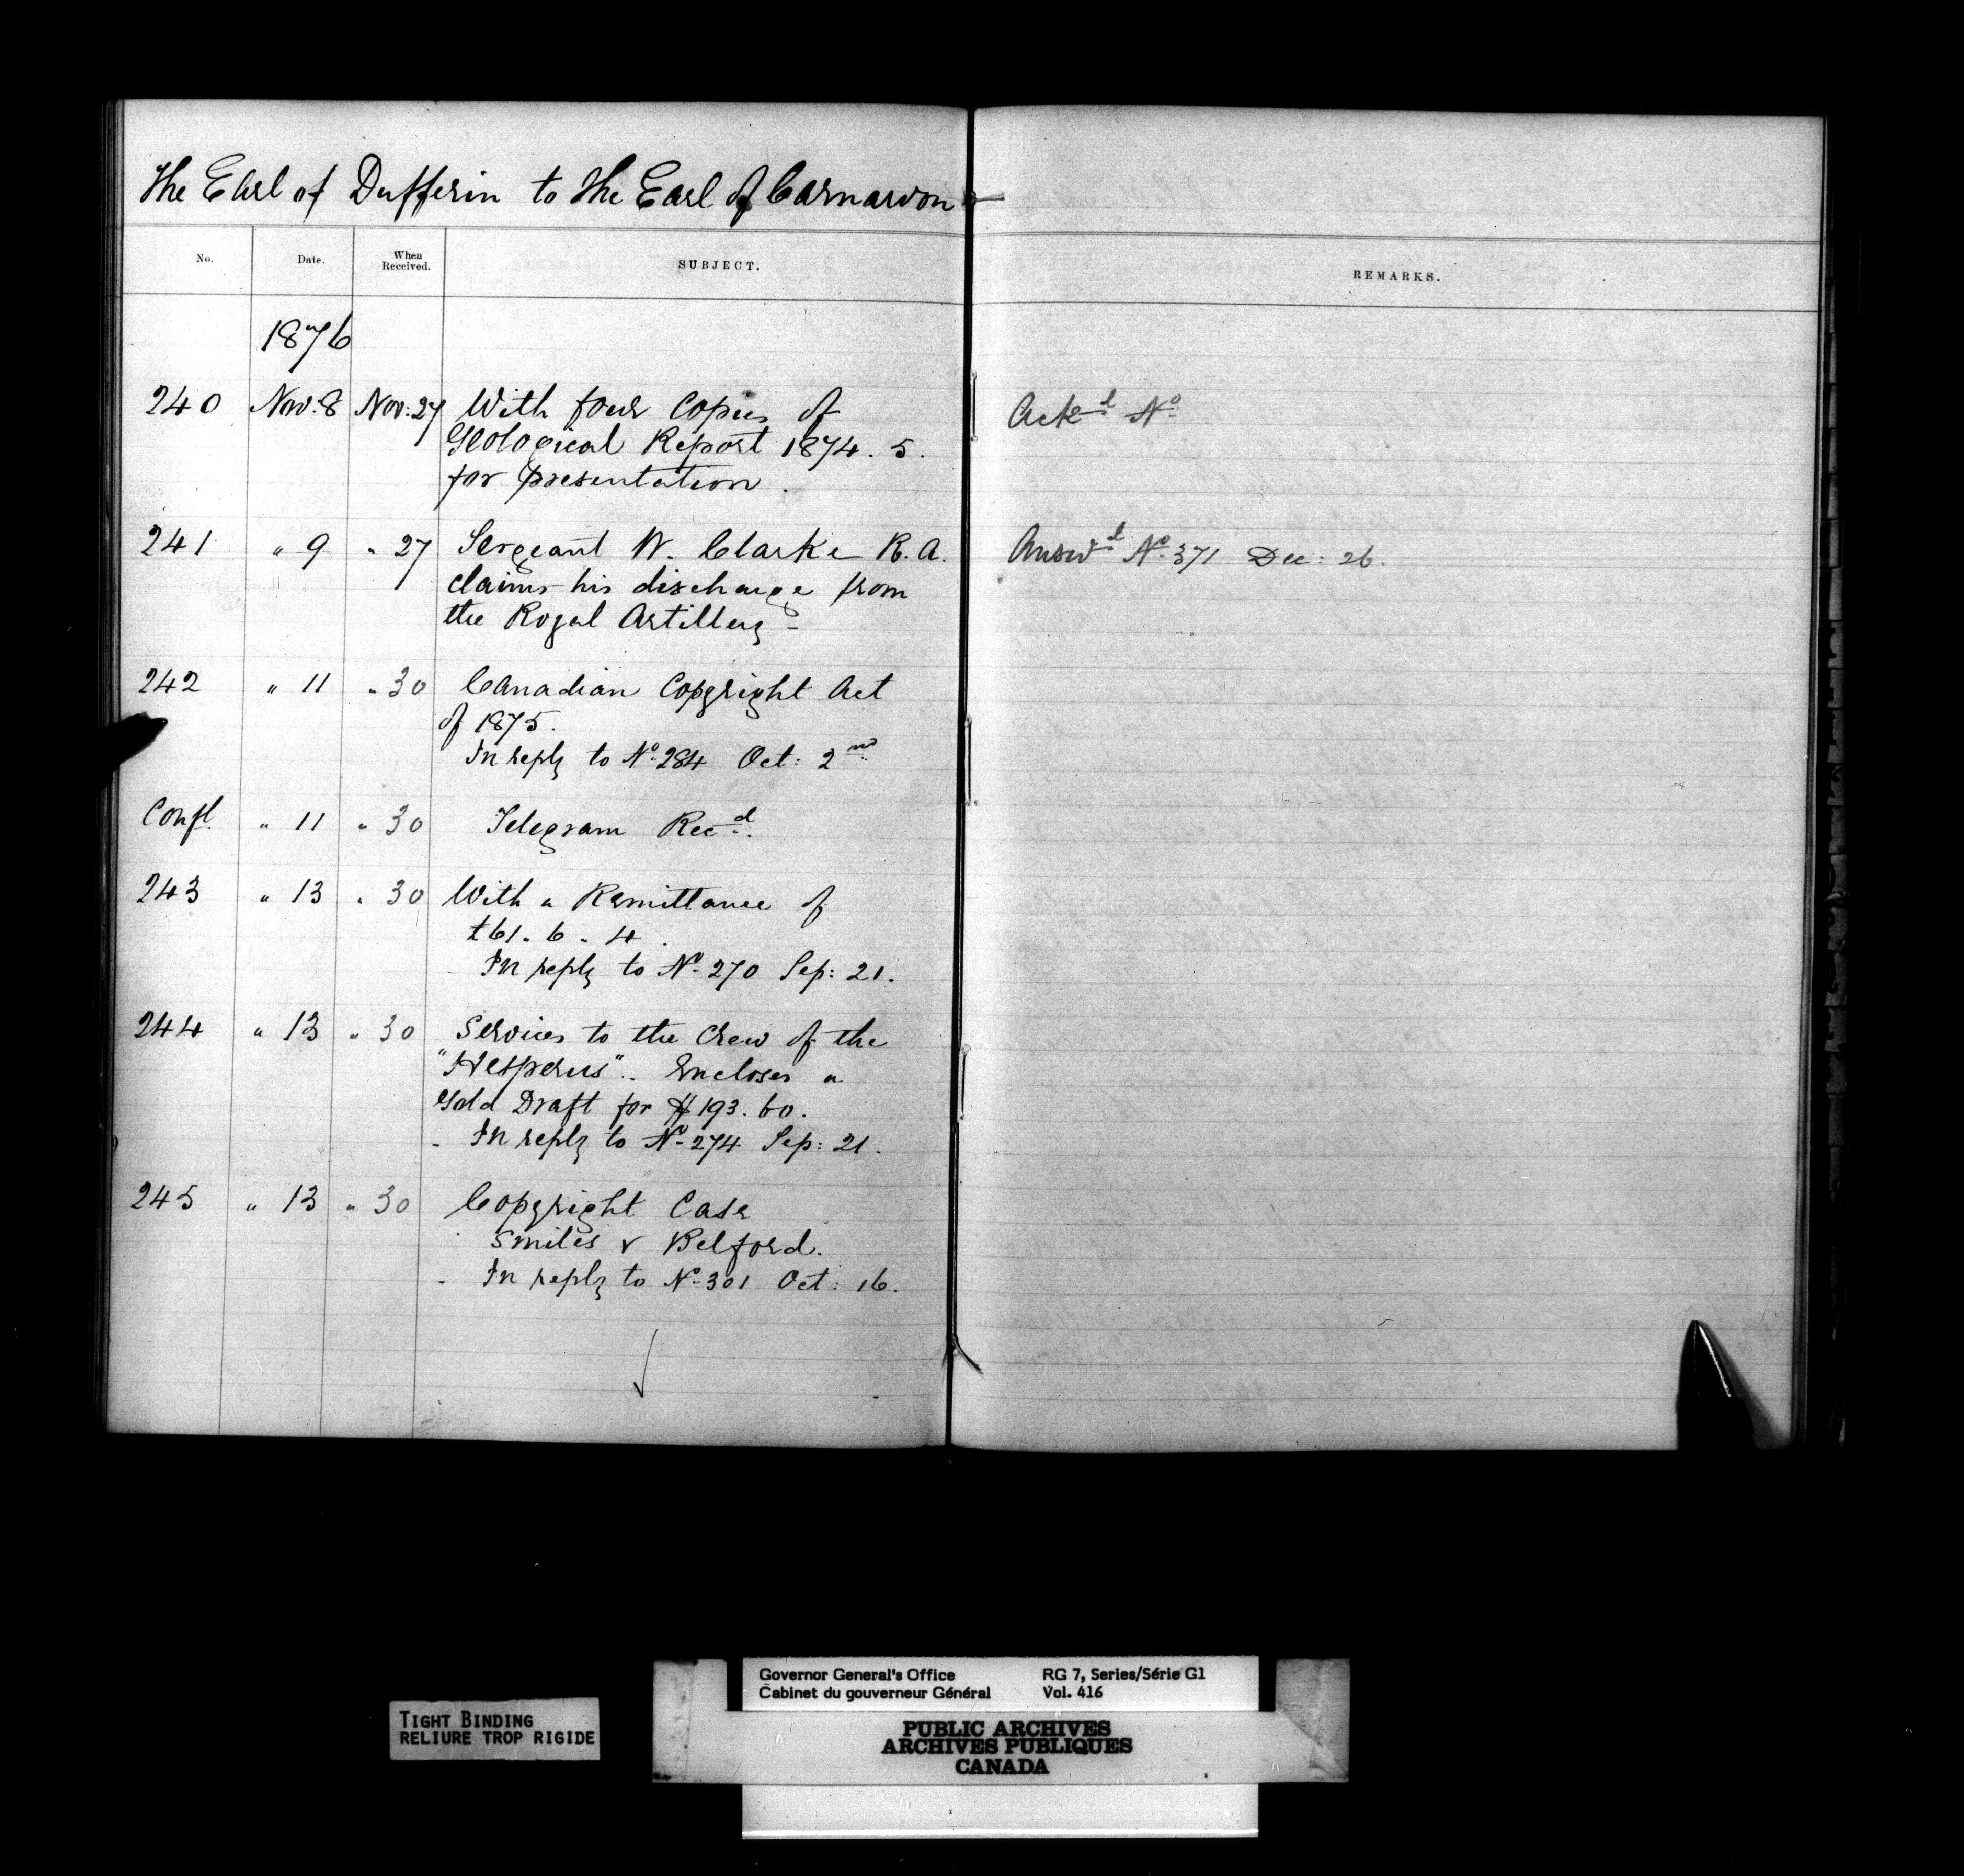 The Earl of Dufferin to the Earl of Carnarvon
No. Date. When Received. SUBJECT. REMARKS.
1876
240 Nov: 8 Nov: 27 With four Copies of Ackd No
Geological Report 1874. 5.
for presentation.
241 " 9 " 27 Sergeant W. Clarke R. A. Answd No 371 Dec: 26.
claims his discharge from
the Royal Artillery -
242 " 11 " 30 Canadian Copyright Act
of 1875.
In reply to No 284 Oct: 2nd
Confl. " 11 " 30 Telegram Recd.
243 " 13 " 30 With a Remittance of
£61. 6. 4.
In reply to No 270 Sep: 21.
244 " 13 " 30 Services to the Crew of the
"Hesperus". Encloses a
Gold Draft for $193.60.
- In reply to No 274 Sep: 21.
245 " 13 " 30 Copyright Case
Smiles v Belford.
- In reply to No 301 Oct: 16.
Governor General's Office RG 7, Series/Série G1
Cabinet du gouverneur Général Vol. 416
TIGHT BINDING
RELIURE TROP RIGIDE
PUBLIC ARCHIVES
ARCHIVES PUBLIQUES
CANADA